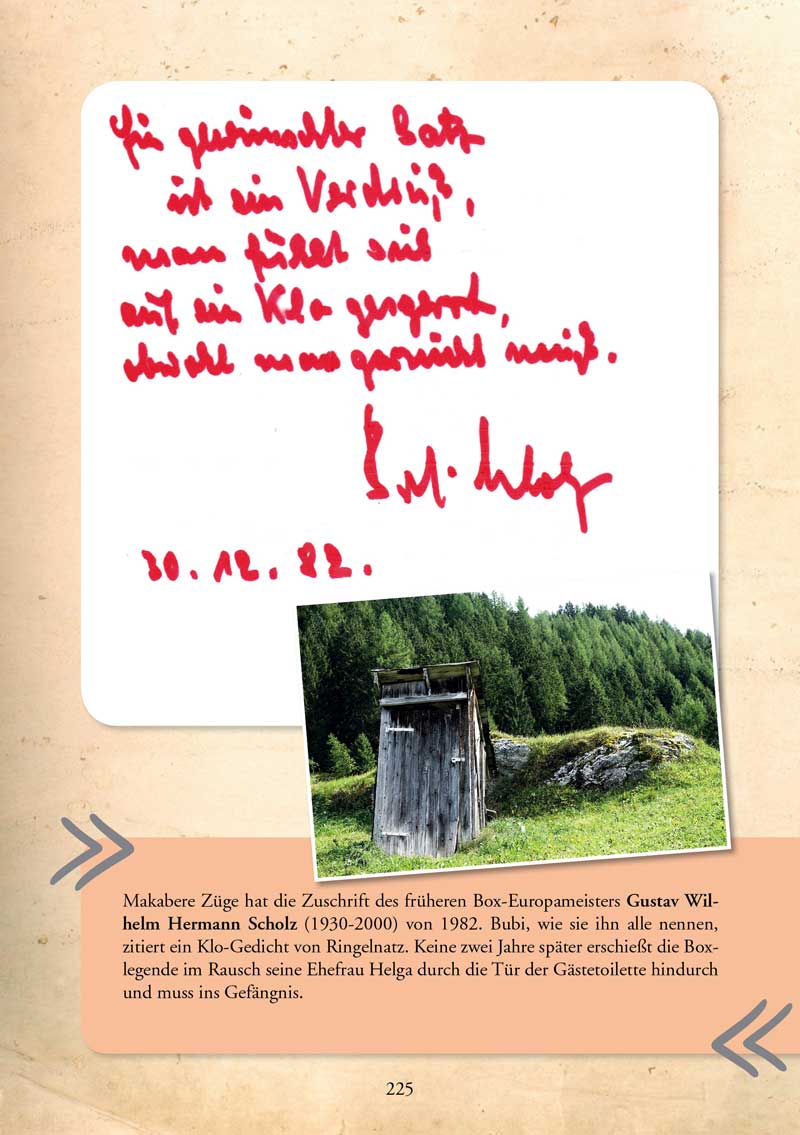 Ein gewünschter Satz
ist ein Verdruß,
man fühlt sich
auf ein Klo gesperrt,
obwohl man garnicht muß.
Scholz
30.12.82.
Makabere Züge hat die Zuschrift des früheren Box-Europameisters Gustav Wil-
helm Hermann Scholz (1930-2000) von 1982. Bubi, wie sie ihn alle nennen,
zitiert ein Klo-Gedicht von Ringelnatz. Keine zwei Jahre später erschießt die Box-
legende im Rausch seine Ehefrau Helga durch die Tür der Gästetoilette hindurch
und muss ins Gefängnis.
225